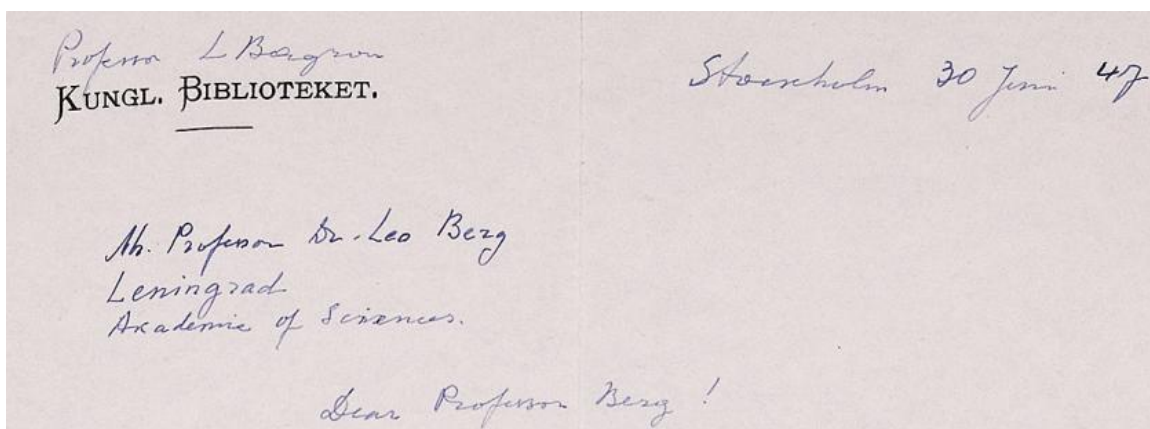 Professor L Bagrow
KUNGL. BIBLIOTEKET.
Stockholm 30 Juni 47
Mr. Professor Dr. Leo Berg
Leningrad
Akademie of Sciences.
Dear Professor Berg!